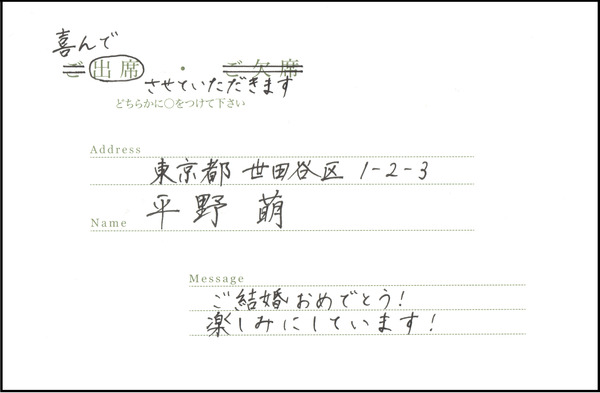 喜んで
ご出席・ご欠席
させていただきます
どちらかに○をつけて下さい
Address
東京都 世田谷区 1-2-3
Name 平野 萌
Message
ご結婚おめでとう!
楽しみにしています!